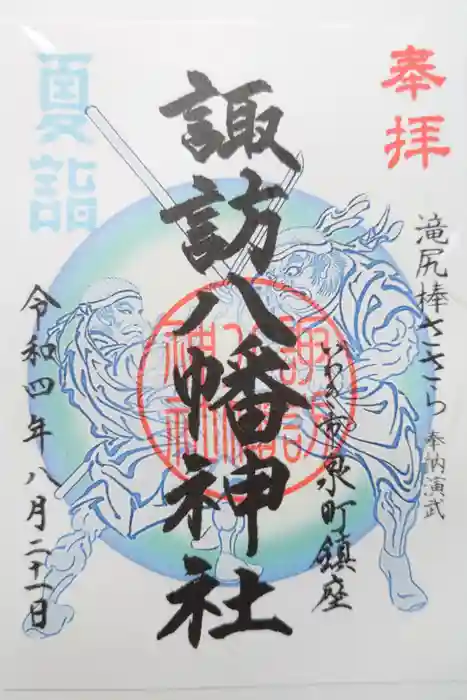 奉拝
滝尻棒ささら 奉納演武
いわき市泉町鎮座
諏訪八幡神社
諏訪八幡神社
夏詣
令和四年八月二十一日